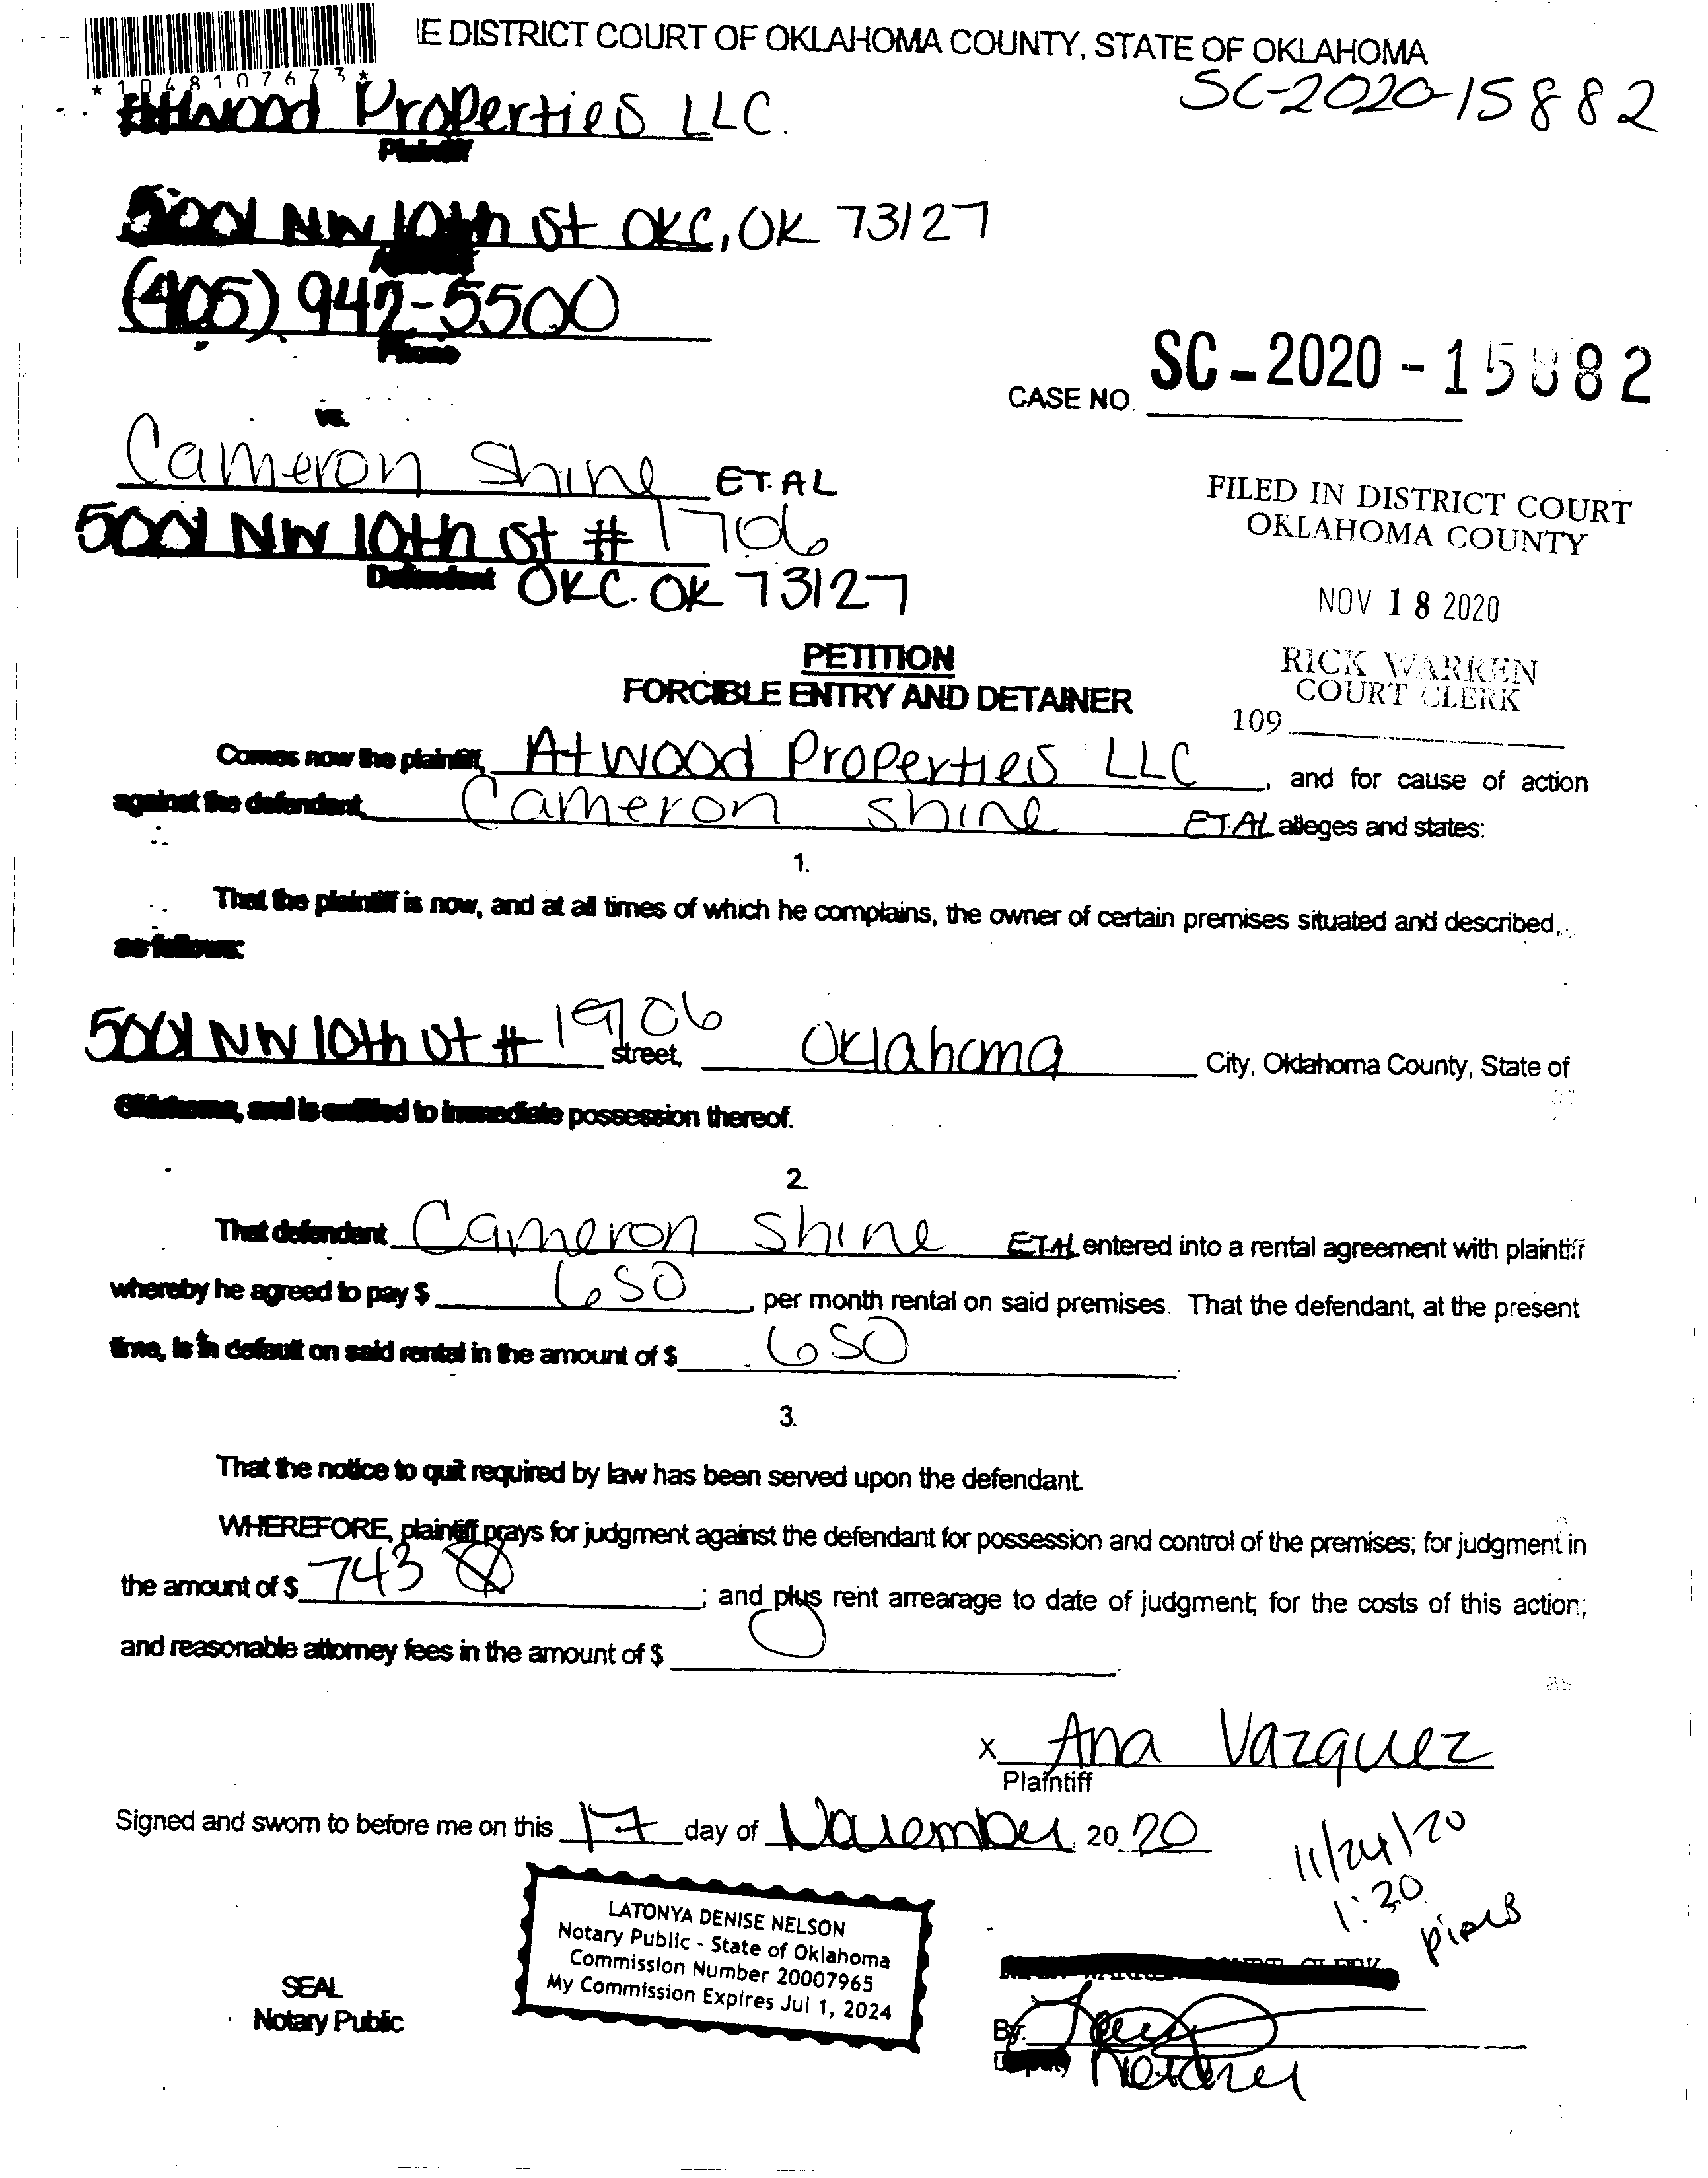 E DISTRICT COURT OF OKLAHOMA COUNTY, STATE OF OKLAHOMA
*1048107673*
SC-2020-15882
Atwood Properties LLC.
Plaintiff
5001 NW 10th St OKC, OK 73127
Address
(405) 942-5500
Phone
CASE NO. SC-2020-15882
vs.
Cameron Shine ET.AL
5001 NW 10th St # 1706
Defendant OKC. OK 73127
FILED IN DISTRICT COURT
OKLAHOMA COUNTY
NOV 18 2020
RICK WARREN
COURT CLERK
109
PETITION
FORCIBLE ENTRY AND DETAINER
Comes now the plaintiff, Atwood Properties LLC, and for cause of action
against the defendant, Cameron Shine ET.AL alleges and states:
1.
That the plaintiff is now, and at all times of which he complains, the owner of certain premises situated and described,
as follows:
5001 NW 10th St # street, Oklahoma City, Oklahoma County, State of
Oklahoma, and is entitled to immediate possession thereof.
2.
That defendant Cameron Shine ET.AL entered into a rental agreement with plaintiff
whereby he agreed to pay $ 650, per month rental on said premises. That the defendant, at the present
time, is in default on said rental in the amount of $ 650
3.
That the notice to quit required by law has been served upon the defendant.
WHEREFORE, plaintiff prays for judgment against the defendant for possession and control of the premises; for judgment in
the amount of $ 743; and plus rent arrearage to date of judgment; for the costs of this action;
and reasonable attorney fees in the amount of $
x Ana Vazquez
Plaintiff
Signed and sworn to before me on this 17 day of November 20 20
11/24/20
1:30
LATONYA DENISE NELSON
Notary Public - State of Oklahoma
Commission Number 20007965
My Commission Expires Jul 1, 2024
SEAL
Notary Public
By:
Deputy Notary